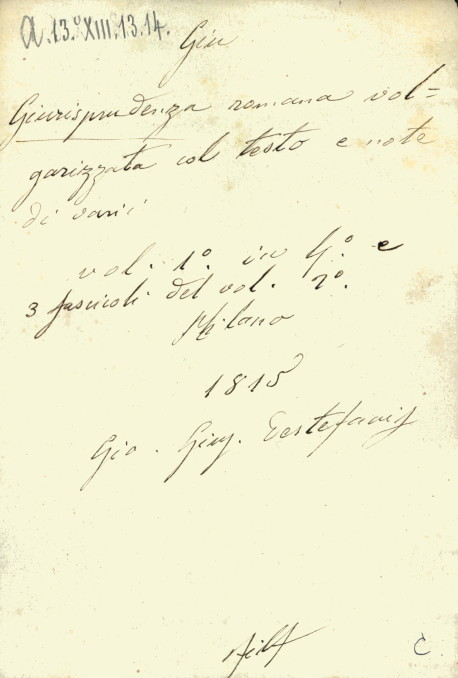 a.13.°XIII.13.14.
Giu
Giurisprudenza romana vol=
garizzata col testo e note
di varii
vol. 1°. in 4°. e
3 fascicoli del vol. 2°.
Milano
1815
Gio. Gius. Destefanis
C